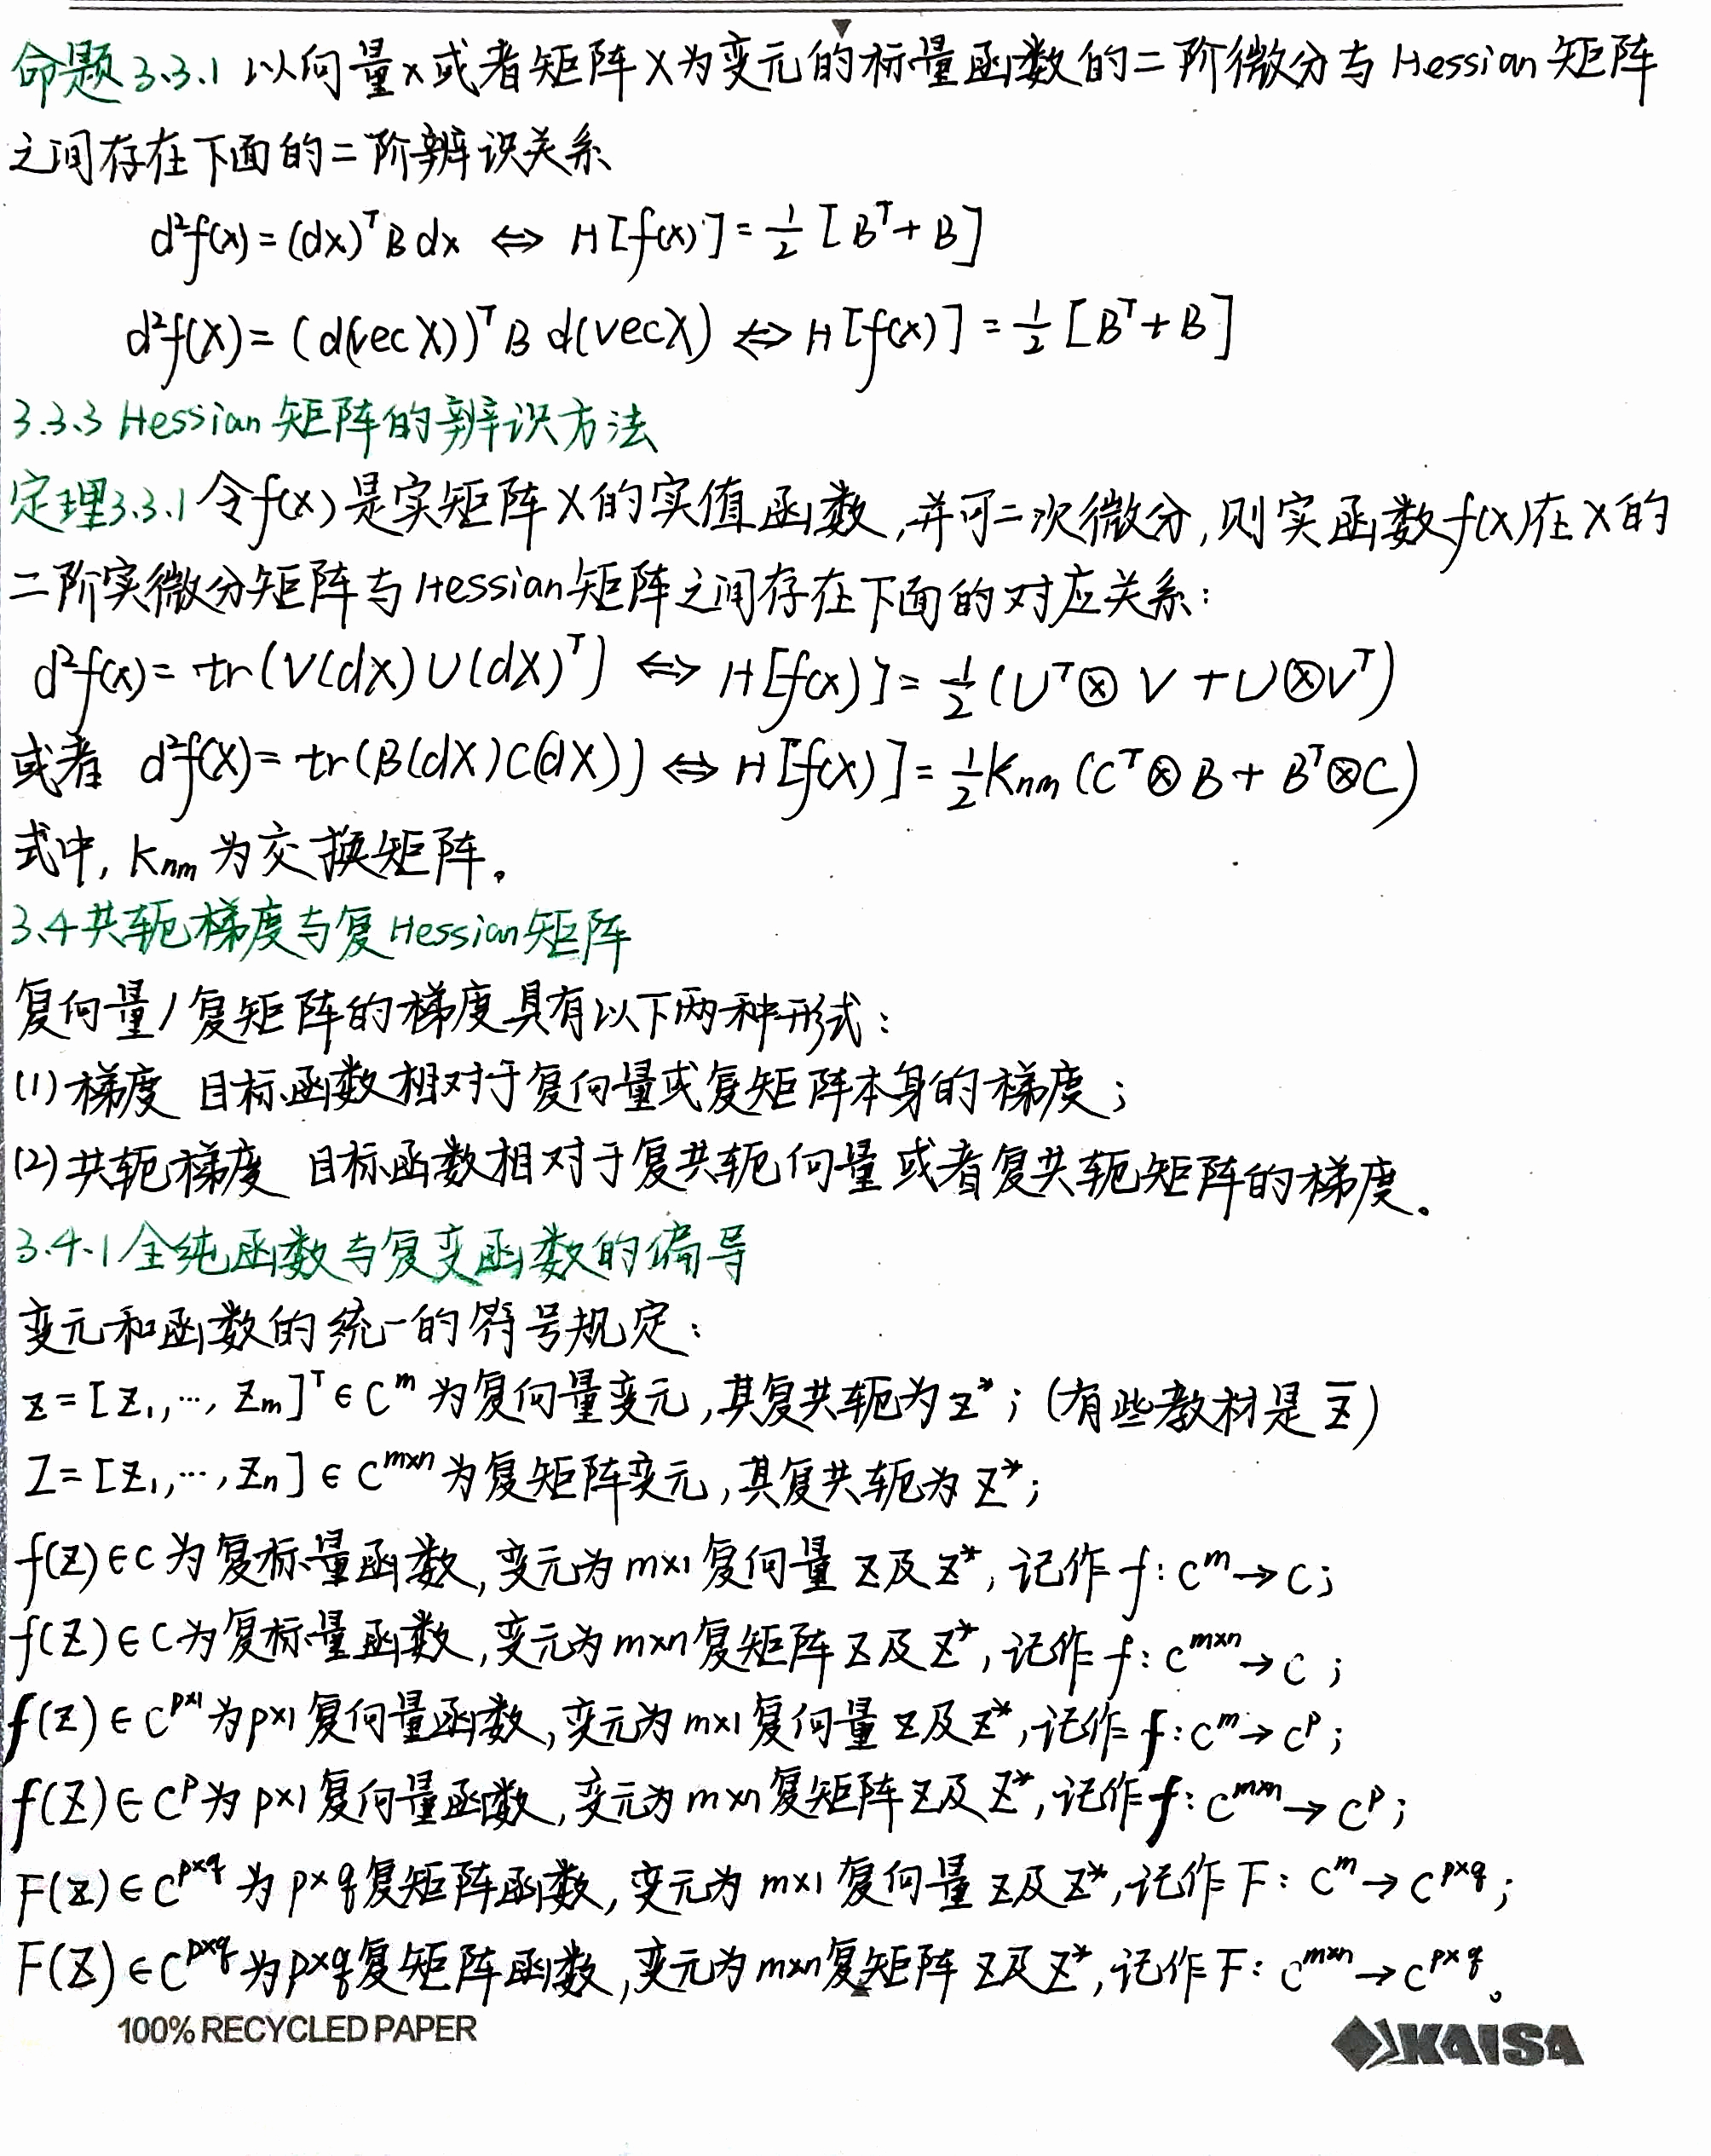 命题3.3.1 以向量x或者矩阵X为变元的标量函数的二阶微分与Hessian矩阵
之间存在下面的二阶辨识关系
d²f(x) = (dx)ᵀB dx ⇔ H[f(x)] = ½[Bᵀ + B]
d²f(X) = (d(vec X))ᵀ B d(vec X) ⇔ H[f(x)] = ½[Bᵀ + B]
3.3.3 Hessian矩阵的辨识方法
定理3.3.1 令f(x)是实矩阵X的实值函数,并可二次微分,则实函数f(X)在X的
二阶实微分矩阵与Hessian矩阵之间存在下面的对应关系:
d²f(x) = tr(V(dX)U(dX)ᵀ) ⇔ H[f(x)] = ½(Uᵀ⊗V + U⊗Vᵀ)
或者 d²f(X) = tr(B(dX)C(dX)) ⇔ H[f(X)] = ½Kₙₘ(Cᵀ⊗B + Bᵀ⊗C)
式中, Kₙₘ为交换矩阵。
3.4 共轭梯度与复Hessian矩阵
复向量/复矩阵的梯度具有以下两种形式:
(1) 梯度 目标函数相对于复向量或复矩阵本身的梯度;
(2) 共轭梯度 目标函数相对于复共轭向量或者复共轭矩阵的梯度。
3.4.1 全纯函数与复变函数的偏导
变元和函数的统一的符号规定:
z = [z₁,…, zₘ]ᵀ ∈ Cᵐ 为复向量变元,其复共轭为z*; (有些教材是z̄)
Z = [z₁,…, zₙ] ∈ Cᵐˣⁿ为复矩阵变元,其复共轭为Z*;
f(z) ∈ C 为复标量函数, 变元为m×1复向量 z及z*, 记作 f: Cᵐ → C;
f(Z) ∈ C为复标量函数,变元为m×n复矩阵Z及Z*,记作f: Cᵐˣⁿ → C;
f(z) ∈ Cᵖˣ¹为p×1复向量函数,变元为m×1复向量z及z*,记作f: Cᵐ → Cᵖ;
f(Z) ∈ Cᵖ为p×1复向量函数,变元为m×n复矩阵Z及Z*,记作f: Cᵐˣⁿ → Cᵖ;
F(z) ∈ C^{p×q} 为p×q复矩阵函数,变元为m×1复向量z及z*,记作F: Cᵐ → C^{p×q};
F(Z) ∈ C^{p×q}为p×q复矩阵函数,变元为m×n复矩阵Z及Z*,记作F: Cᵐˣⁿ → C^{p×q}。
100% RECYCLED PAPER
KAISA